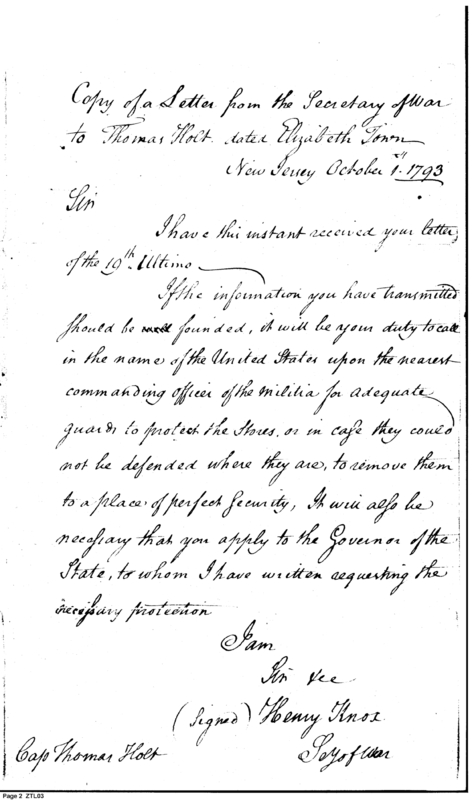 Copy of a Letter from the Secretary of War
to Thomas Holt dated Elizabeth Town
New Jersey October 1st. 1793
Sir
I have this instant received your letter
of the 19th. Ultimo
If the information you have transmitted
should be well founded, it will be your duty to call
in the name of the United States upon the nearest
commanding officer of the militia for adequate
guards to protect the Stores, or in case they could
not be defended where they are, to remove them
to a place of perfect Security, It will also be
necessary that you apply to the Governor of the
State, to whom I have written requesting the
necessary protection
I am
Sir &ce
(Signed) Henry Knox
Sey of War
Cap Thomas Holt
Page 2 ZTL03